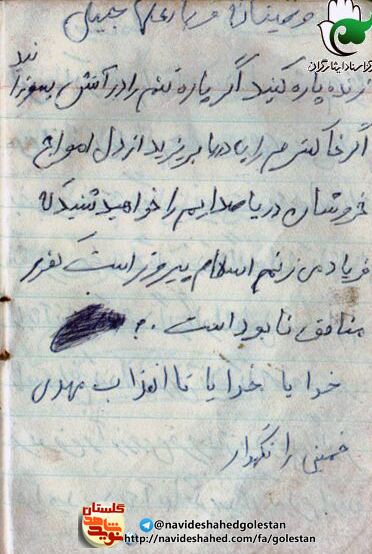 نرنده پاره کنید اگر پاره تنم را در آتش بسوزانند
اگر خاکستر م را با دریا بریزید از دل امواج
خروشان دریا صدایم را خواهید شنید که
فریاد می زنم اسلام پیروز است کفر
منافق نابود است .
خدایا خدایا تا انقلاب مهدی
خمینی را نگهدار
مرکز اسناد ایثارگران
گلستان
نوید شاهد
@navideshahedgolestan
http://navideshahed.com/fa/golestan